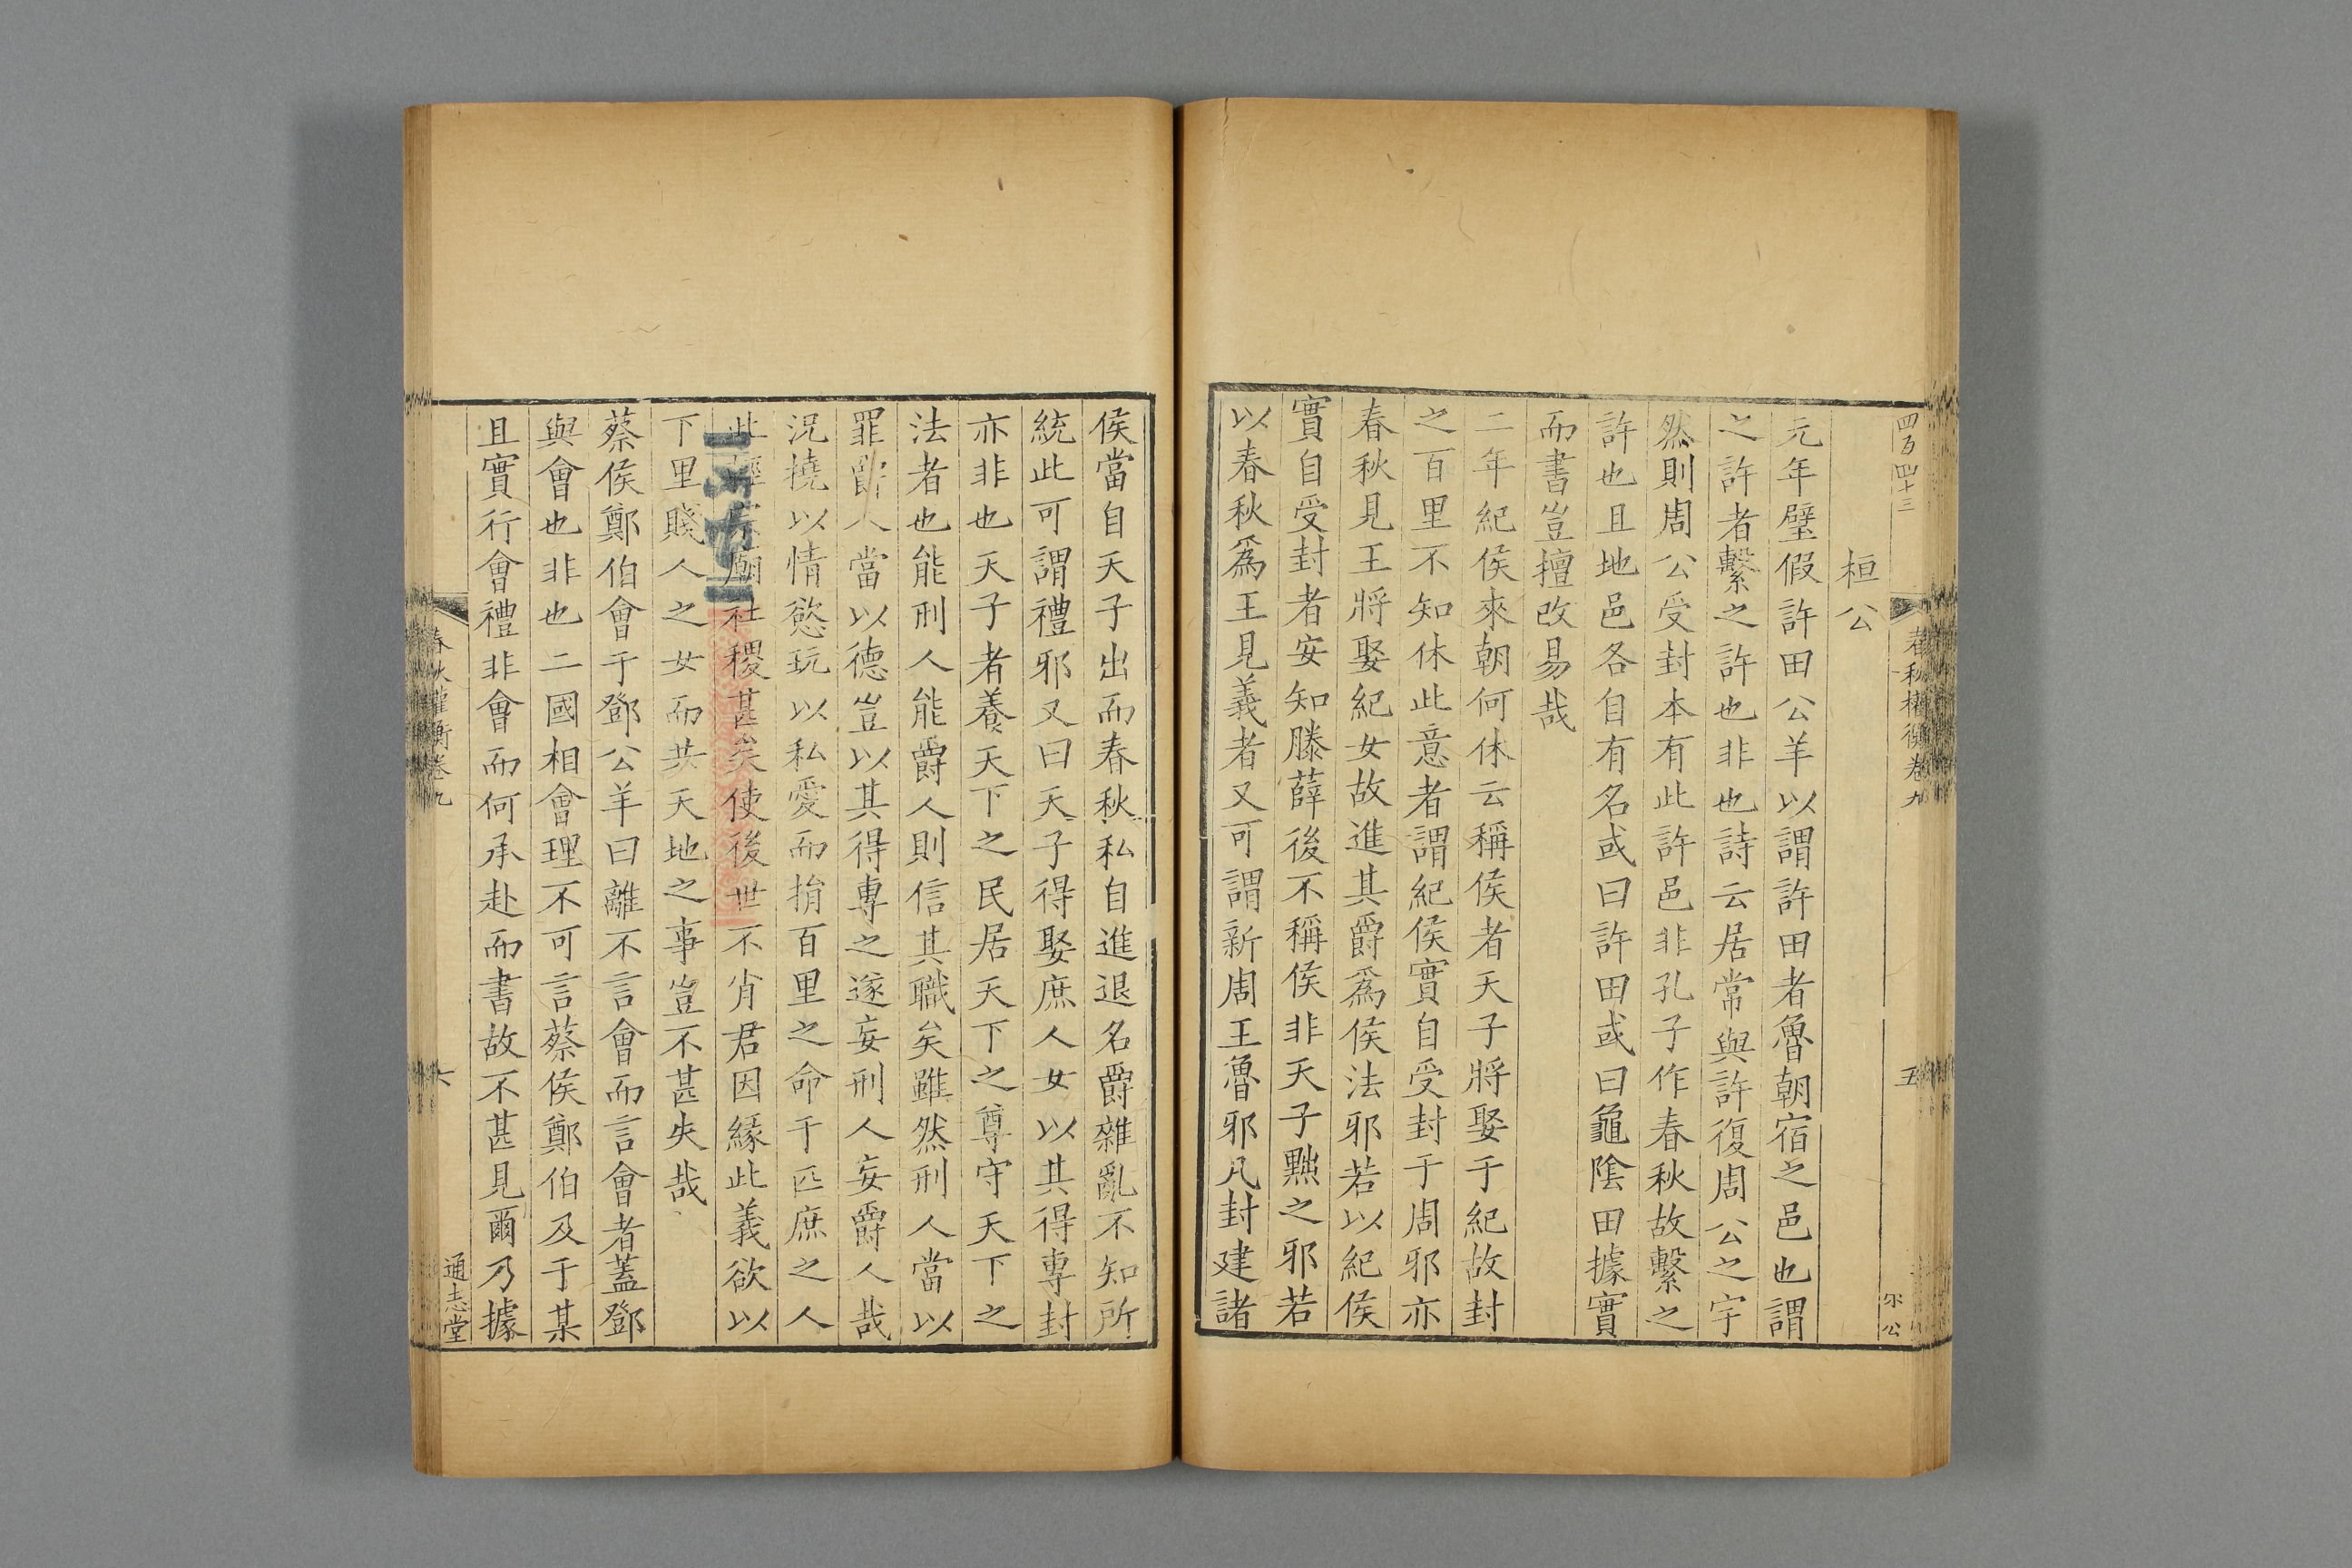 四百四十三
春秋權衡卷九
五
桓公
元年璧假許田公羊以謂許田者魯朝宿之邑也謂
之許者繫之許也非也詩云居常與許復周公之宇
然則周公受封本有此許邑非孔子作春秋故繫之
許也且地邑各自有名或曰許田或曰龜陰田據實
而書豈擅改易哉
二年紀侯來朝何休云稱侯者天子將娶于紀故封
之百里不知休此意者謂紀侯實自受封于周邪亦
春秋見王將娶紀女故進其爵爲侯法邪若以紀侯
實自受封者安知滕薛後不稱侯非天子黜之邪若
以春秋爲王見義者又可謂新周王魯邪凡封建諸
侯當自天子出而春秋私自進退名爵雜亂不知所
統此可謂禮邪又曰天子得娶庶人女以其得專封
亦非也天子者養天下之民居天下之尊守天下之
法者也能刑人能爵人則信其職矣雖然刑人當以
罪爵人當以德豈以其得專之遂妄刑人妄爵人哉
況撓以情慾玩以私愛而捐百里之命于匹庶之人
此輕宗廟社稷甚矣使後世不肖君因緣此義欲以
下里賤人之女而共天地之事豈不甚失哉
蔡侯鄭伯會于鄧公羊曰離不言會而言會者蓋鄧
與會也非也二國相會理不可言蔡侯鄭伯及于某
且實行會禮非會而何承赴而書故不甚見爾乃據
春秋權衡卷九
六
通志堂